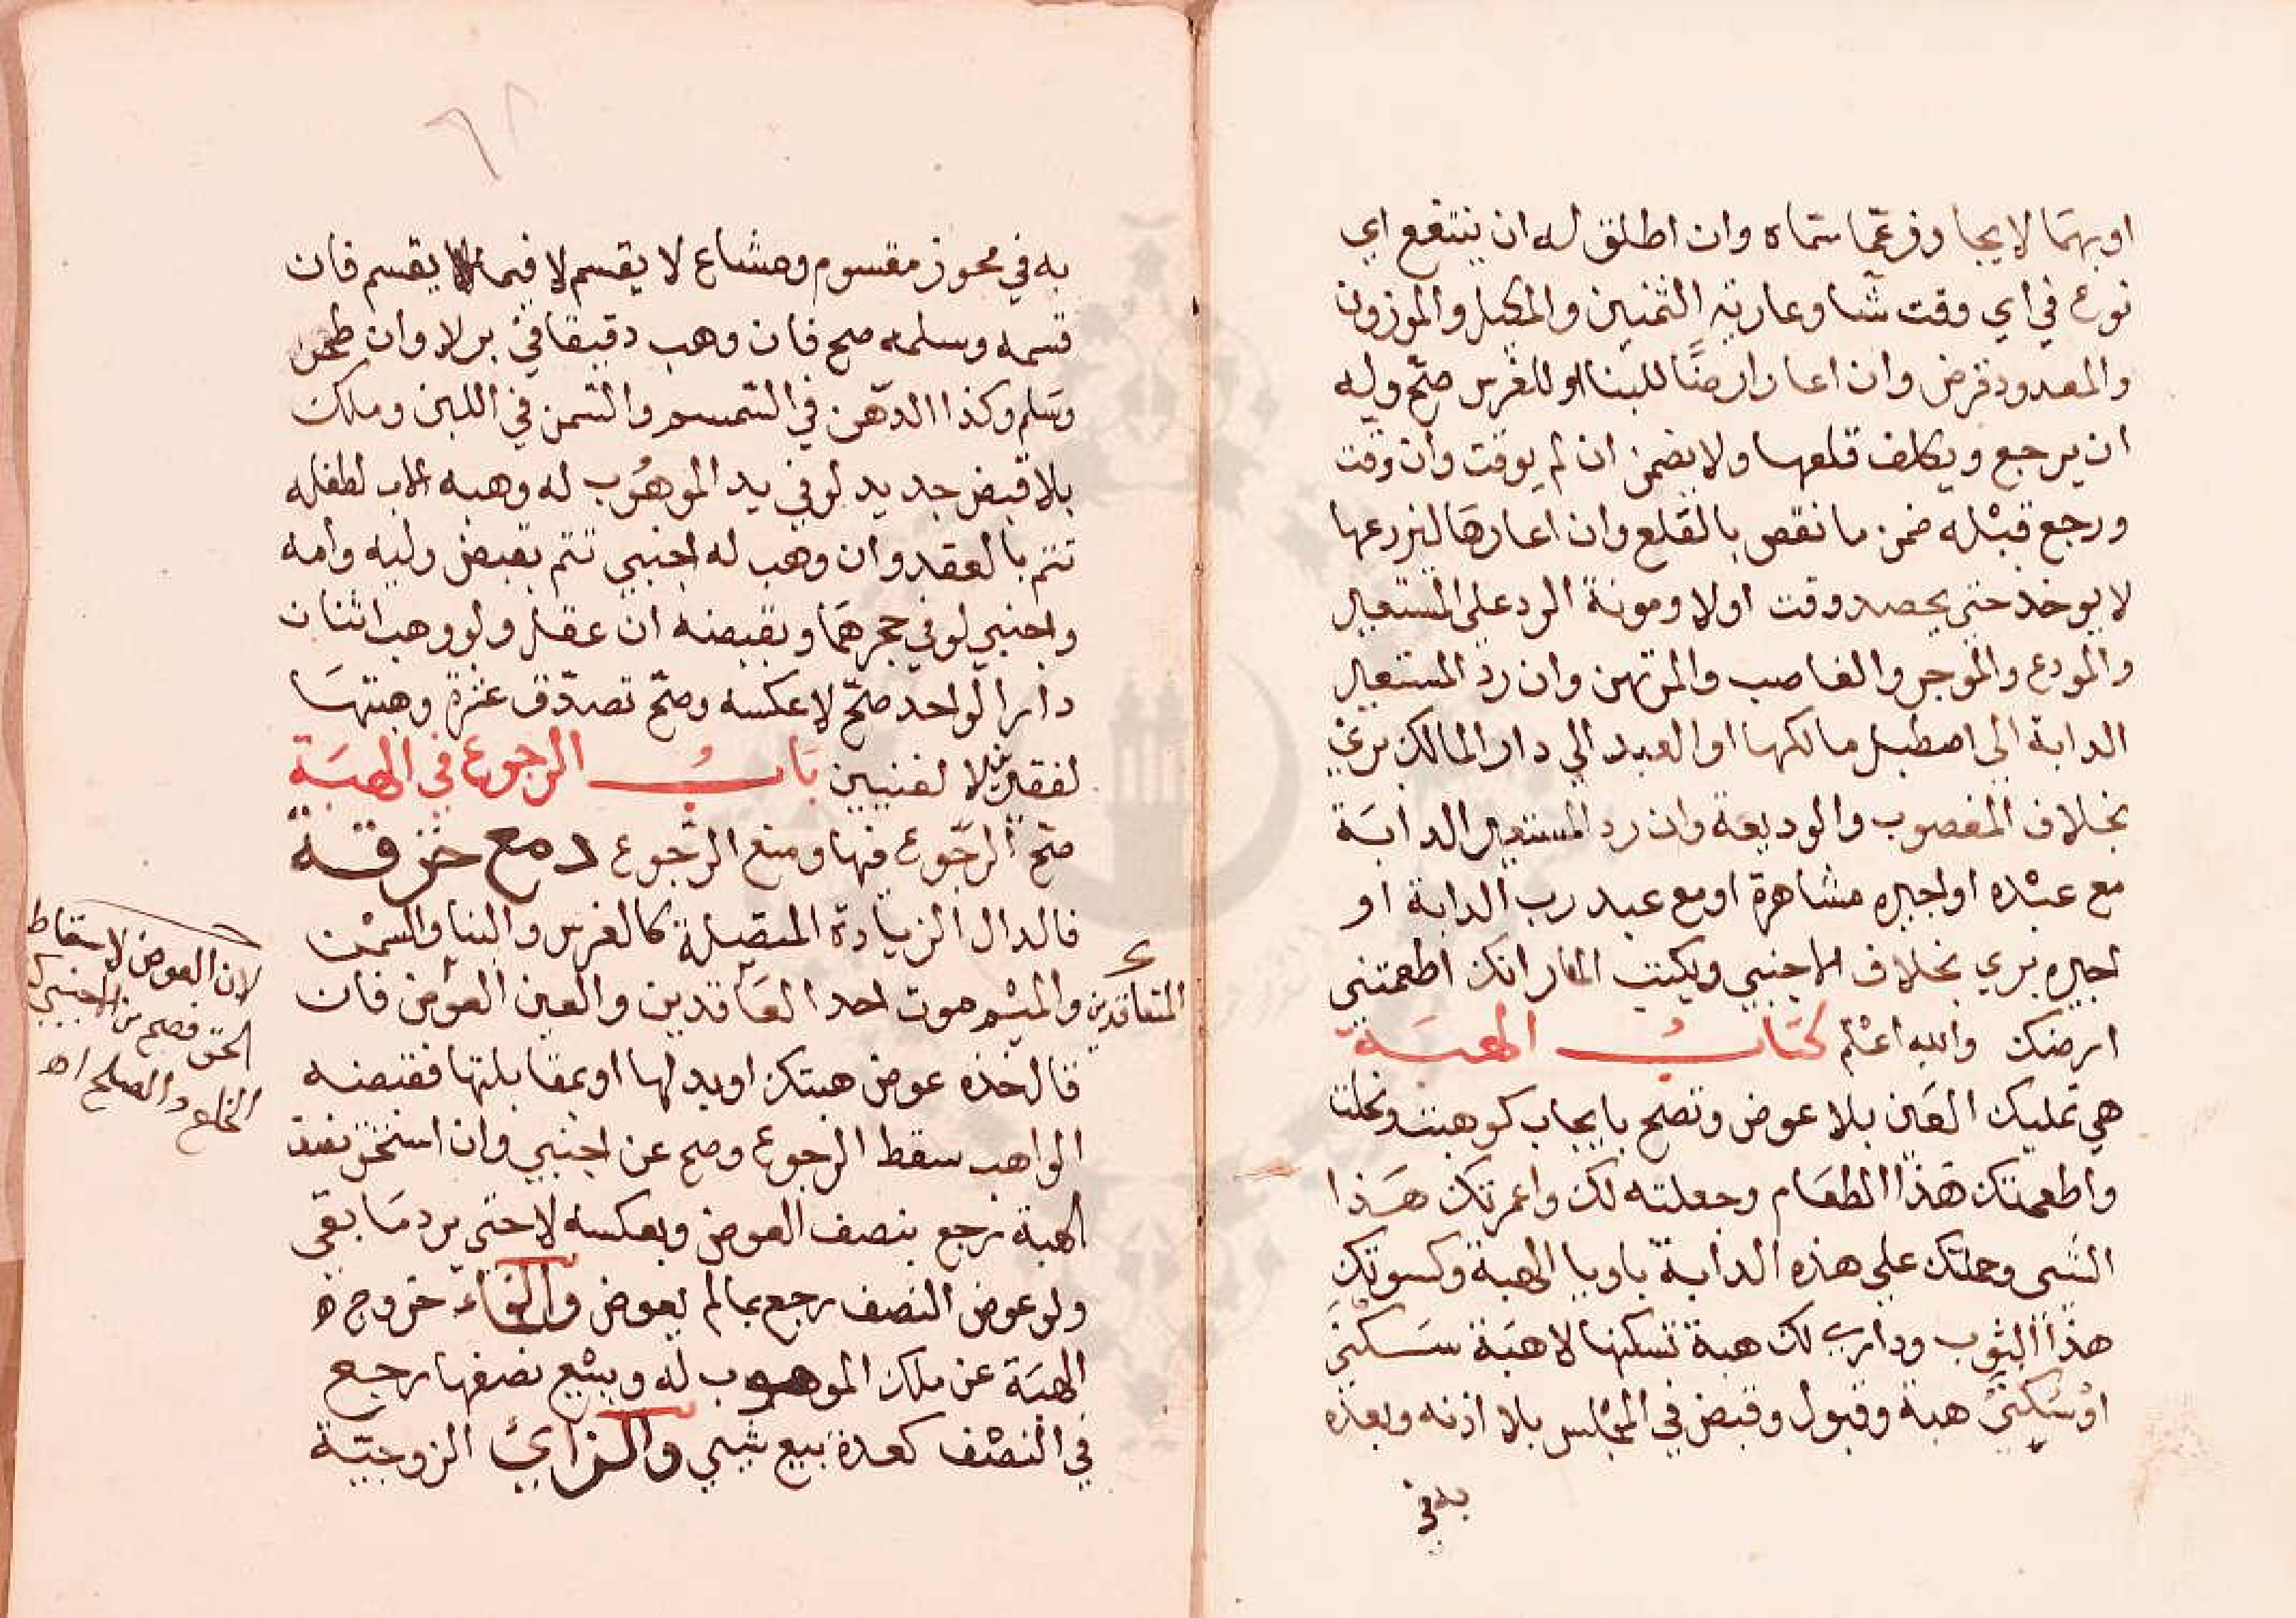 او بهما لا يجاوز عما سماه وان اطلق له ان ينتفع اي
نوع في اي وقت شا وعارية الثمنين والمكيل والموزون
والمعدود قرض وان اعار ارضًا للبنا او للغرس صحّ وله
ان يرجع ويكلف قلعها ولا يضمن ان لم يوقت وان وقت
ورجع قبْله ضمن ما نقص بالقلع وان اعارهَا ليزرعها
لا يوخذ حتى يحصد وقت اولا ومونة الرد على المستعير
والمودع والموجر والغاصب والمرتهن وان ردّ المستعير
الدابة الى اصطبل مالكها او العبد الي دار المالك بريْ
بخلاف المغصوب والوديعة وان رد المستعير الدابَة
مع عبْده او اجيره مشاهرة او مع عبد رب الدابة او
اجيره بري بخلاف الاجنبي ويكتب المعار انك اطعمتني
ارضك والله اعْلم كتَابُ الهبَة
هي تمليك العَين بلا عوض وتصح بايجاب كوهبت ونحلت
واطعمتك هَذا الطعَام وجعلته لك واعمرتك هَذا
الشي وحملتك على هذه الدابة ناويا الهبة وكسوتك
هذا الثوب وداري لك هبة تسكنها لا هبَة سَكنى
او سُكنى هبة وقبول وقبض في المجْلس بلا اذنه وبعده
به في
٦٨
به في محوز مقسوم ومشاع لا يقسم لا فيما يقسم فان
قسمه وسلمه صح فان وهب دقيقا في بر لا وان طحن
وسَلم وكذا الدّهن في السّمسم والسّمن في اللبن وملك
بلا قبض جديد لو في يد الموهُوب له وهبه الاب لطفله
تتم بالعقد وان وهب له اجنبي تتم بقبض وليه وامه
واجنبي لو في حجرهمَا وبقبضه ان عقل ولو وهب اثنان
دارا لواحد صحّ لا عكسه وصحّ تصدّق عشرة وهبتهَا
لفقيرين لا لغنيين بَابُ الرجوع في الهبَة
صحّ الرجوع فيها ومنع الرجوع دمع خزقة
فالدال الزيادة المتصلة كالغرس والبنا والسمْن
والميْم موت احد العَاقدين والعين العوَض فان
المتعاقدين
قال خذه عوض هبتك او بدلها او بمقابلتها فقبضه
الواهب سقط الرجوع وصح عن اجنبي وان استحق نصف
الهبة رجع بنصف العوض وبعكسه لا حتى يرد مَا بقي
ولو عوض النصف رجع بما لم يعوض والخَاءُ خروج
الهبَة عن ملك الموهوب له وببيْع نصفها رجع
في النصْف كعدم بيع شيي والزاي الزوجيّة
لان العوض لاسقاط
الحق فصح من الاجنبي كـ
الخلع والصلح اهـ